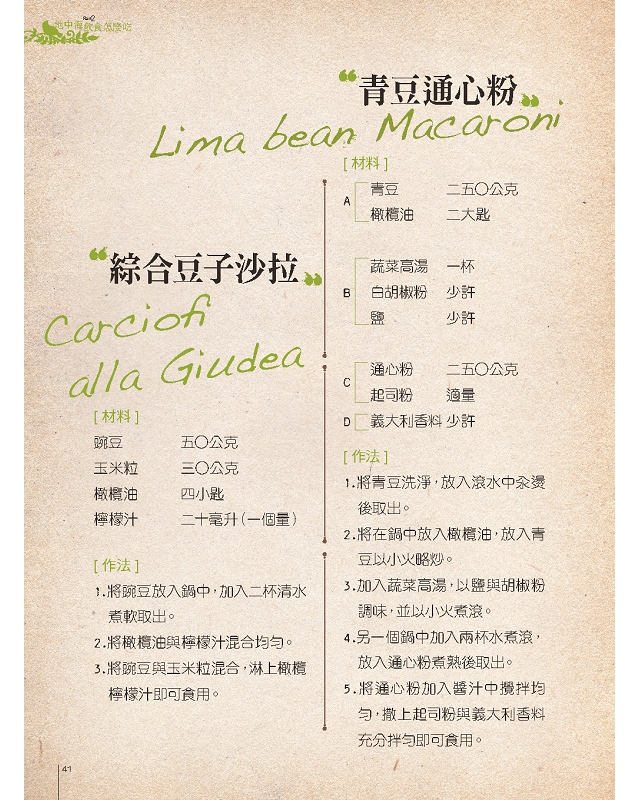 Part2
地中海飲食怎麼吃
“青豆通心粉”
Lima bean Macaroni
[材料]
A
青豆 二五〇公克
橄欖油 二大匙
B
蔬菜高湯 一杯
白胡椒粉 少許
鹽 少許
C
通心粉 二五〇公克
起司粉 適量
D 義大利香料 少許
[作法]
1.將青豆洗淨，放入滾水中汆燙
後取出。
2.將在鍋中放入橄欖油，放入青
豆以小火略炒。
3.加入蔬菜高湯，以鹽與胡椒粉
調味，並以小火煮滾。
4.另一個鍋中加入兩杯水煮滾，
放入通心粉煮熟後取出。
5.將通心粉加入醬汁中攪拌均
勻，撒上起司粉與義大利香料
充分拌勻即可食用。
“綜合豆子沙拉”
Carciofi
alla Giudea
[材料]
豌豆 五〇公克
玉米粒 三〇公克
橄欖油 四小匙
檸檬汁 二十毫升(一個量)
[作法]
1.將豌豆放入鍋中，加入二杯清水
煮軟取出。
2.將橄欖油與檸檬汁混合均勻。
3.將豌豆與玉米粒混合，淋上橄欖
檸檬汁即可食用。
41